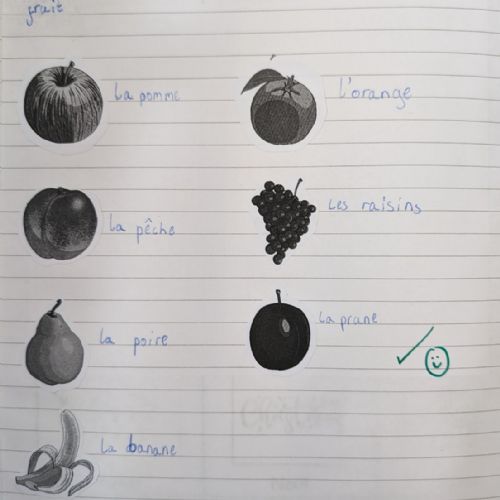 fruit
la pomme
l'orange
la pêche
les raisins
la poire
la prune
la banane